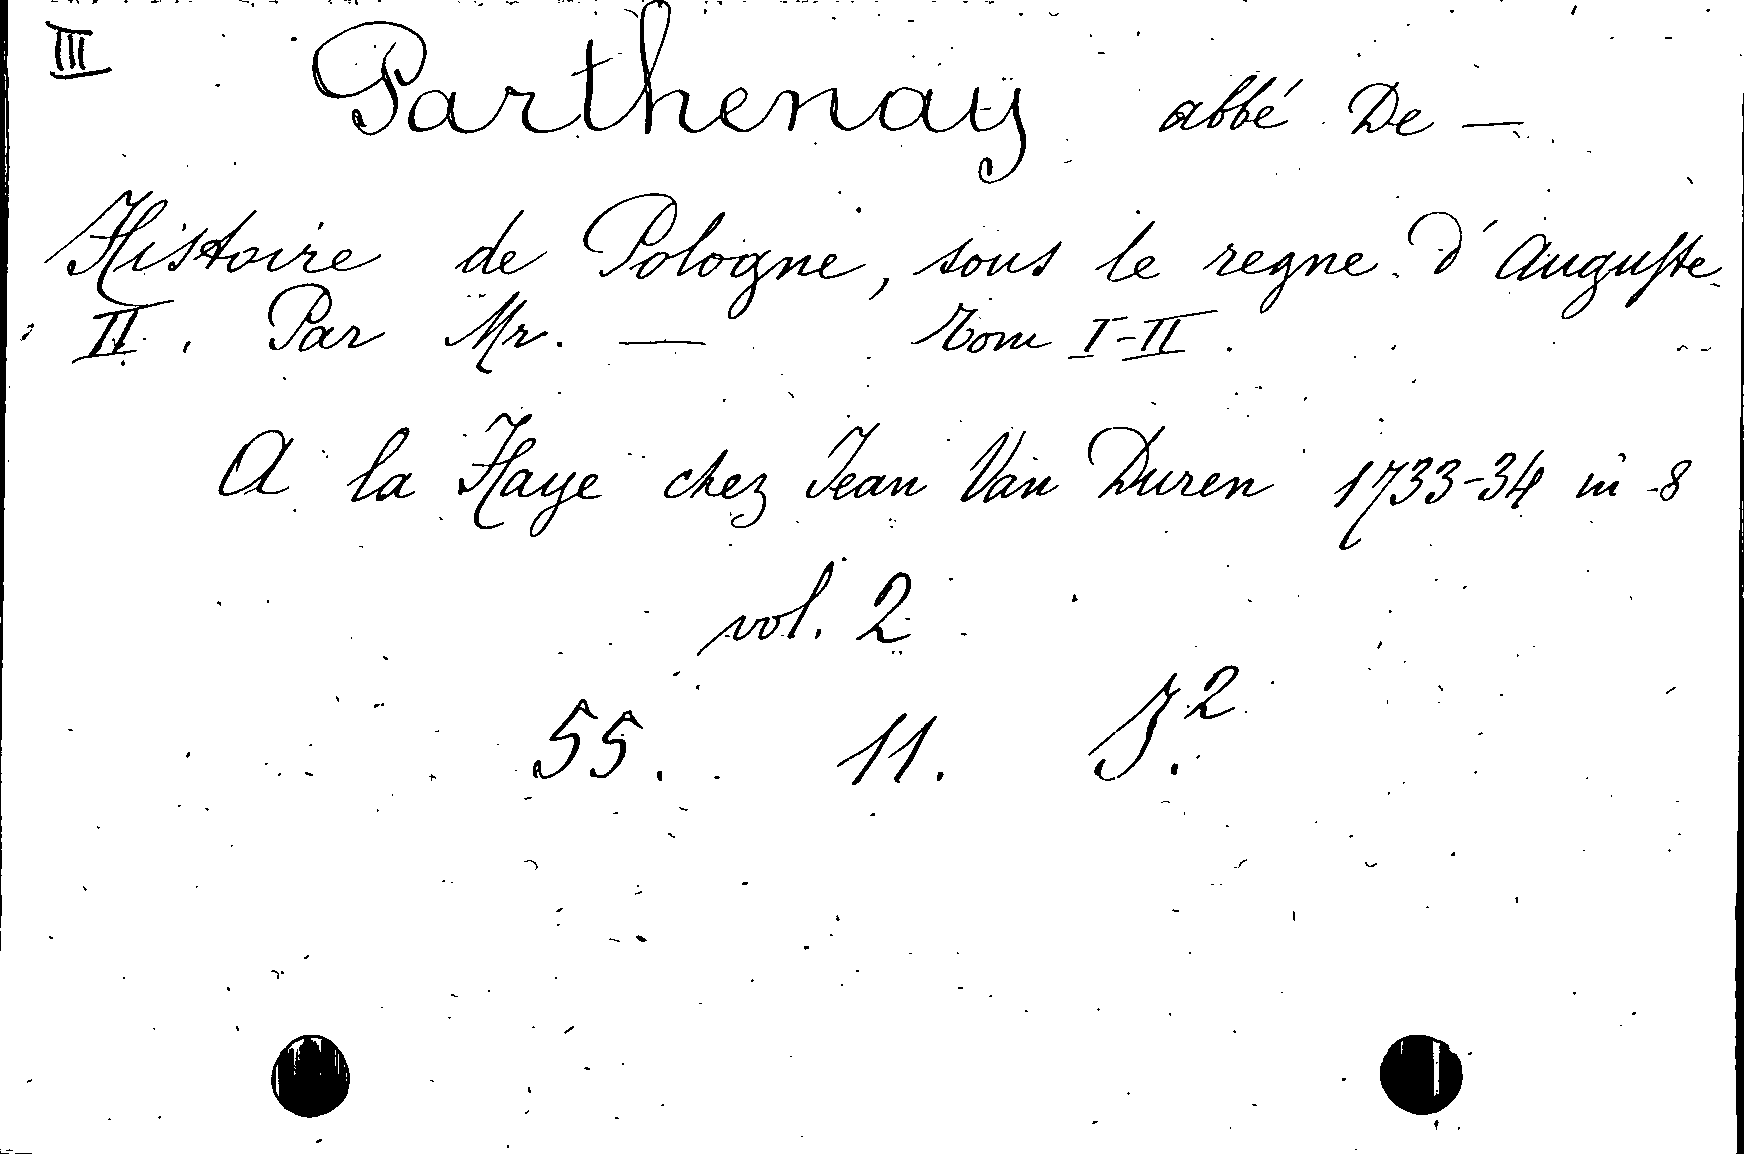 III
Parthenay abbé De —
Histoire de Pologne, sous le regne d'Auguste
II. Par Mr. — Tom I-II.
A la Haye chez Jean Van Duren 1733-34 in -8
vol. 2
55. 11. J.²